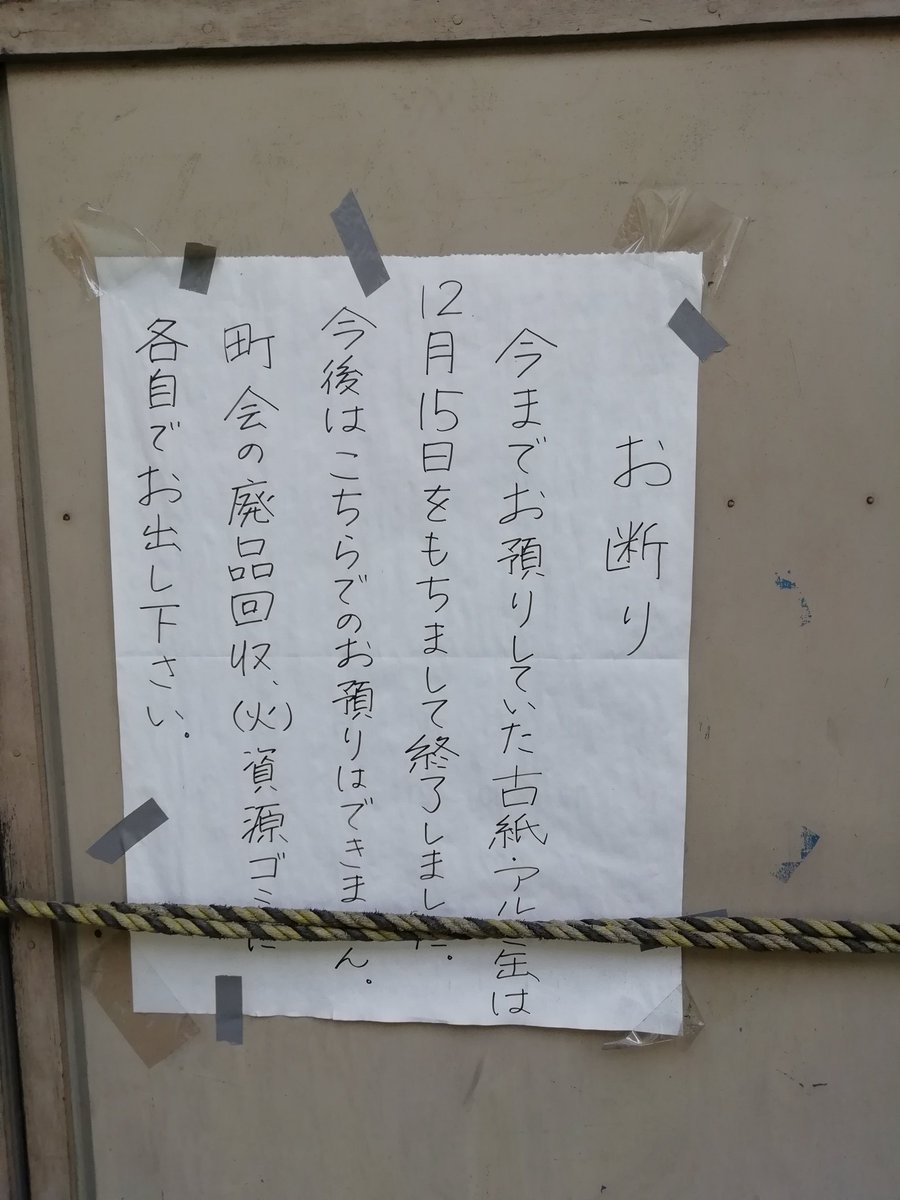 お断り
今までお預りしていた古紙・アルミ缶は
12月15日をもちまして終了しました。
今後はこちらでのお預りはできません。
町会の廃品回収、(火)資源ゴミに
各自でお出し下さい。